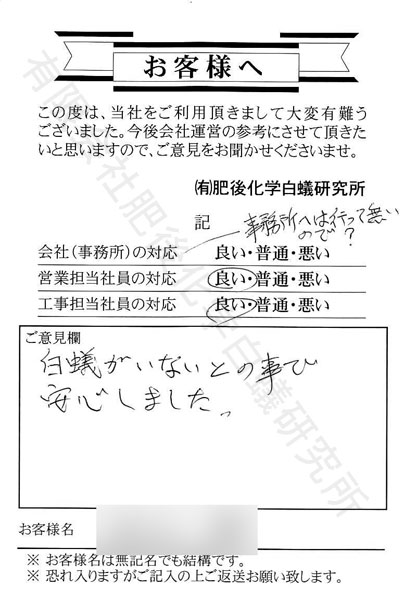 お客様へ
この度は、当社をご利用頂きまして大変有難う
ございました。今後会社運営の参考にさせて頂きた
いと思いますので、ご意見をお聞かせくださいませ。
㈲肥後化学白蟻研究所
記
事務所へは行って無い
ので?
会社(事務所)の対応 良い・普通・悪い
営業担当社員の対応 良い・普通・悪い
工事担当社員の対応 良い・普通・悪い
ご意見欄
白蟻がいないとの事で
安心しました。
お客様名
※ お客様名は無記名でも結構です。
※ 恐れ入りますがご記入の上ご返送お願い致します。
有限会社肥後化学白蟻研究所